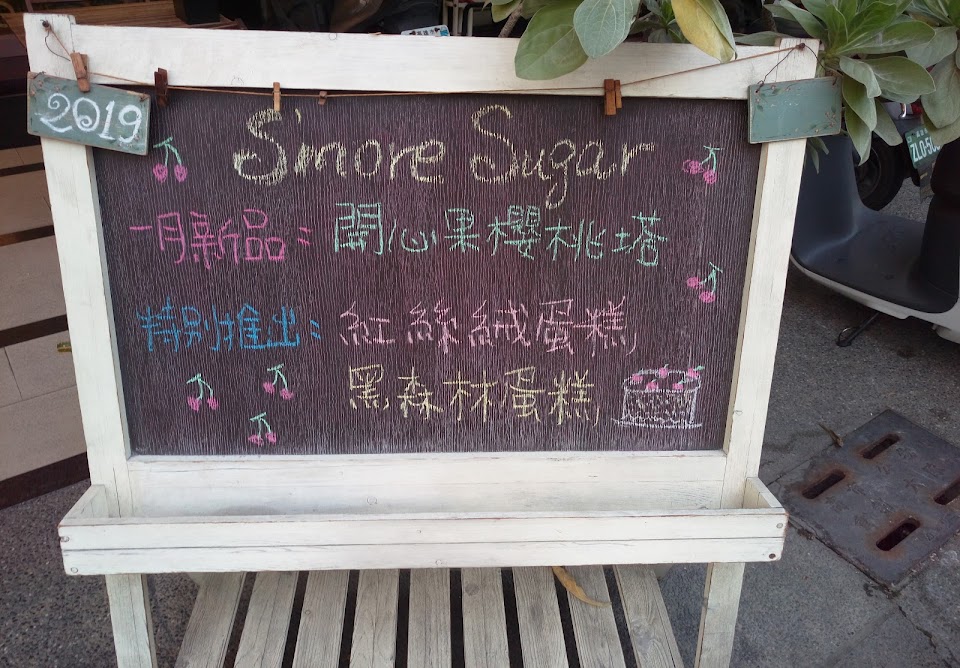 2019
S'more Sugar
一月新品：開心果櫻桃塔
特別推出：紅絲絨蛋糕
黑森林蛋糕